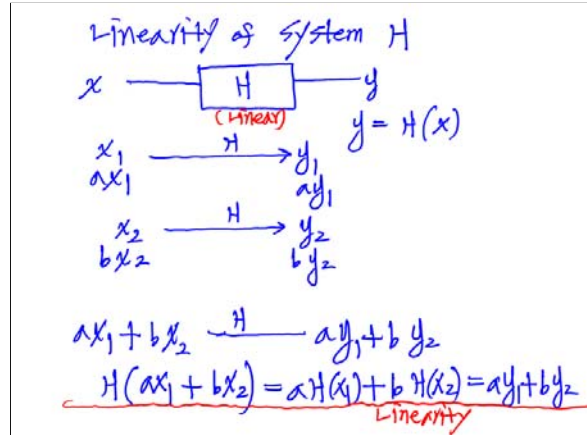 Linearity of System H
x H y
(Linear)
y = H(x)
x₁ H y₁
ax₁ ay₁
x₂ H y₂
bx₂ by₂
ax₁ + bx₂ H ay₁ + by₂
H(ax₁ + bx₂) = aH(x₁) + bH(x₂) = ay₁ + by₂
Linearity